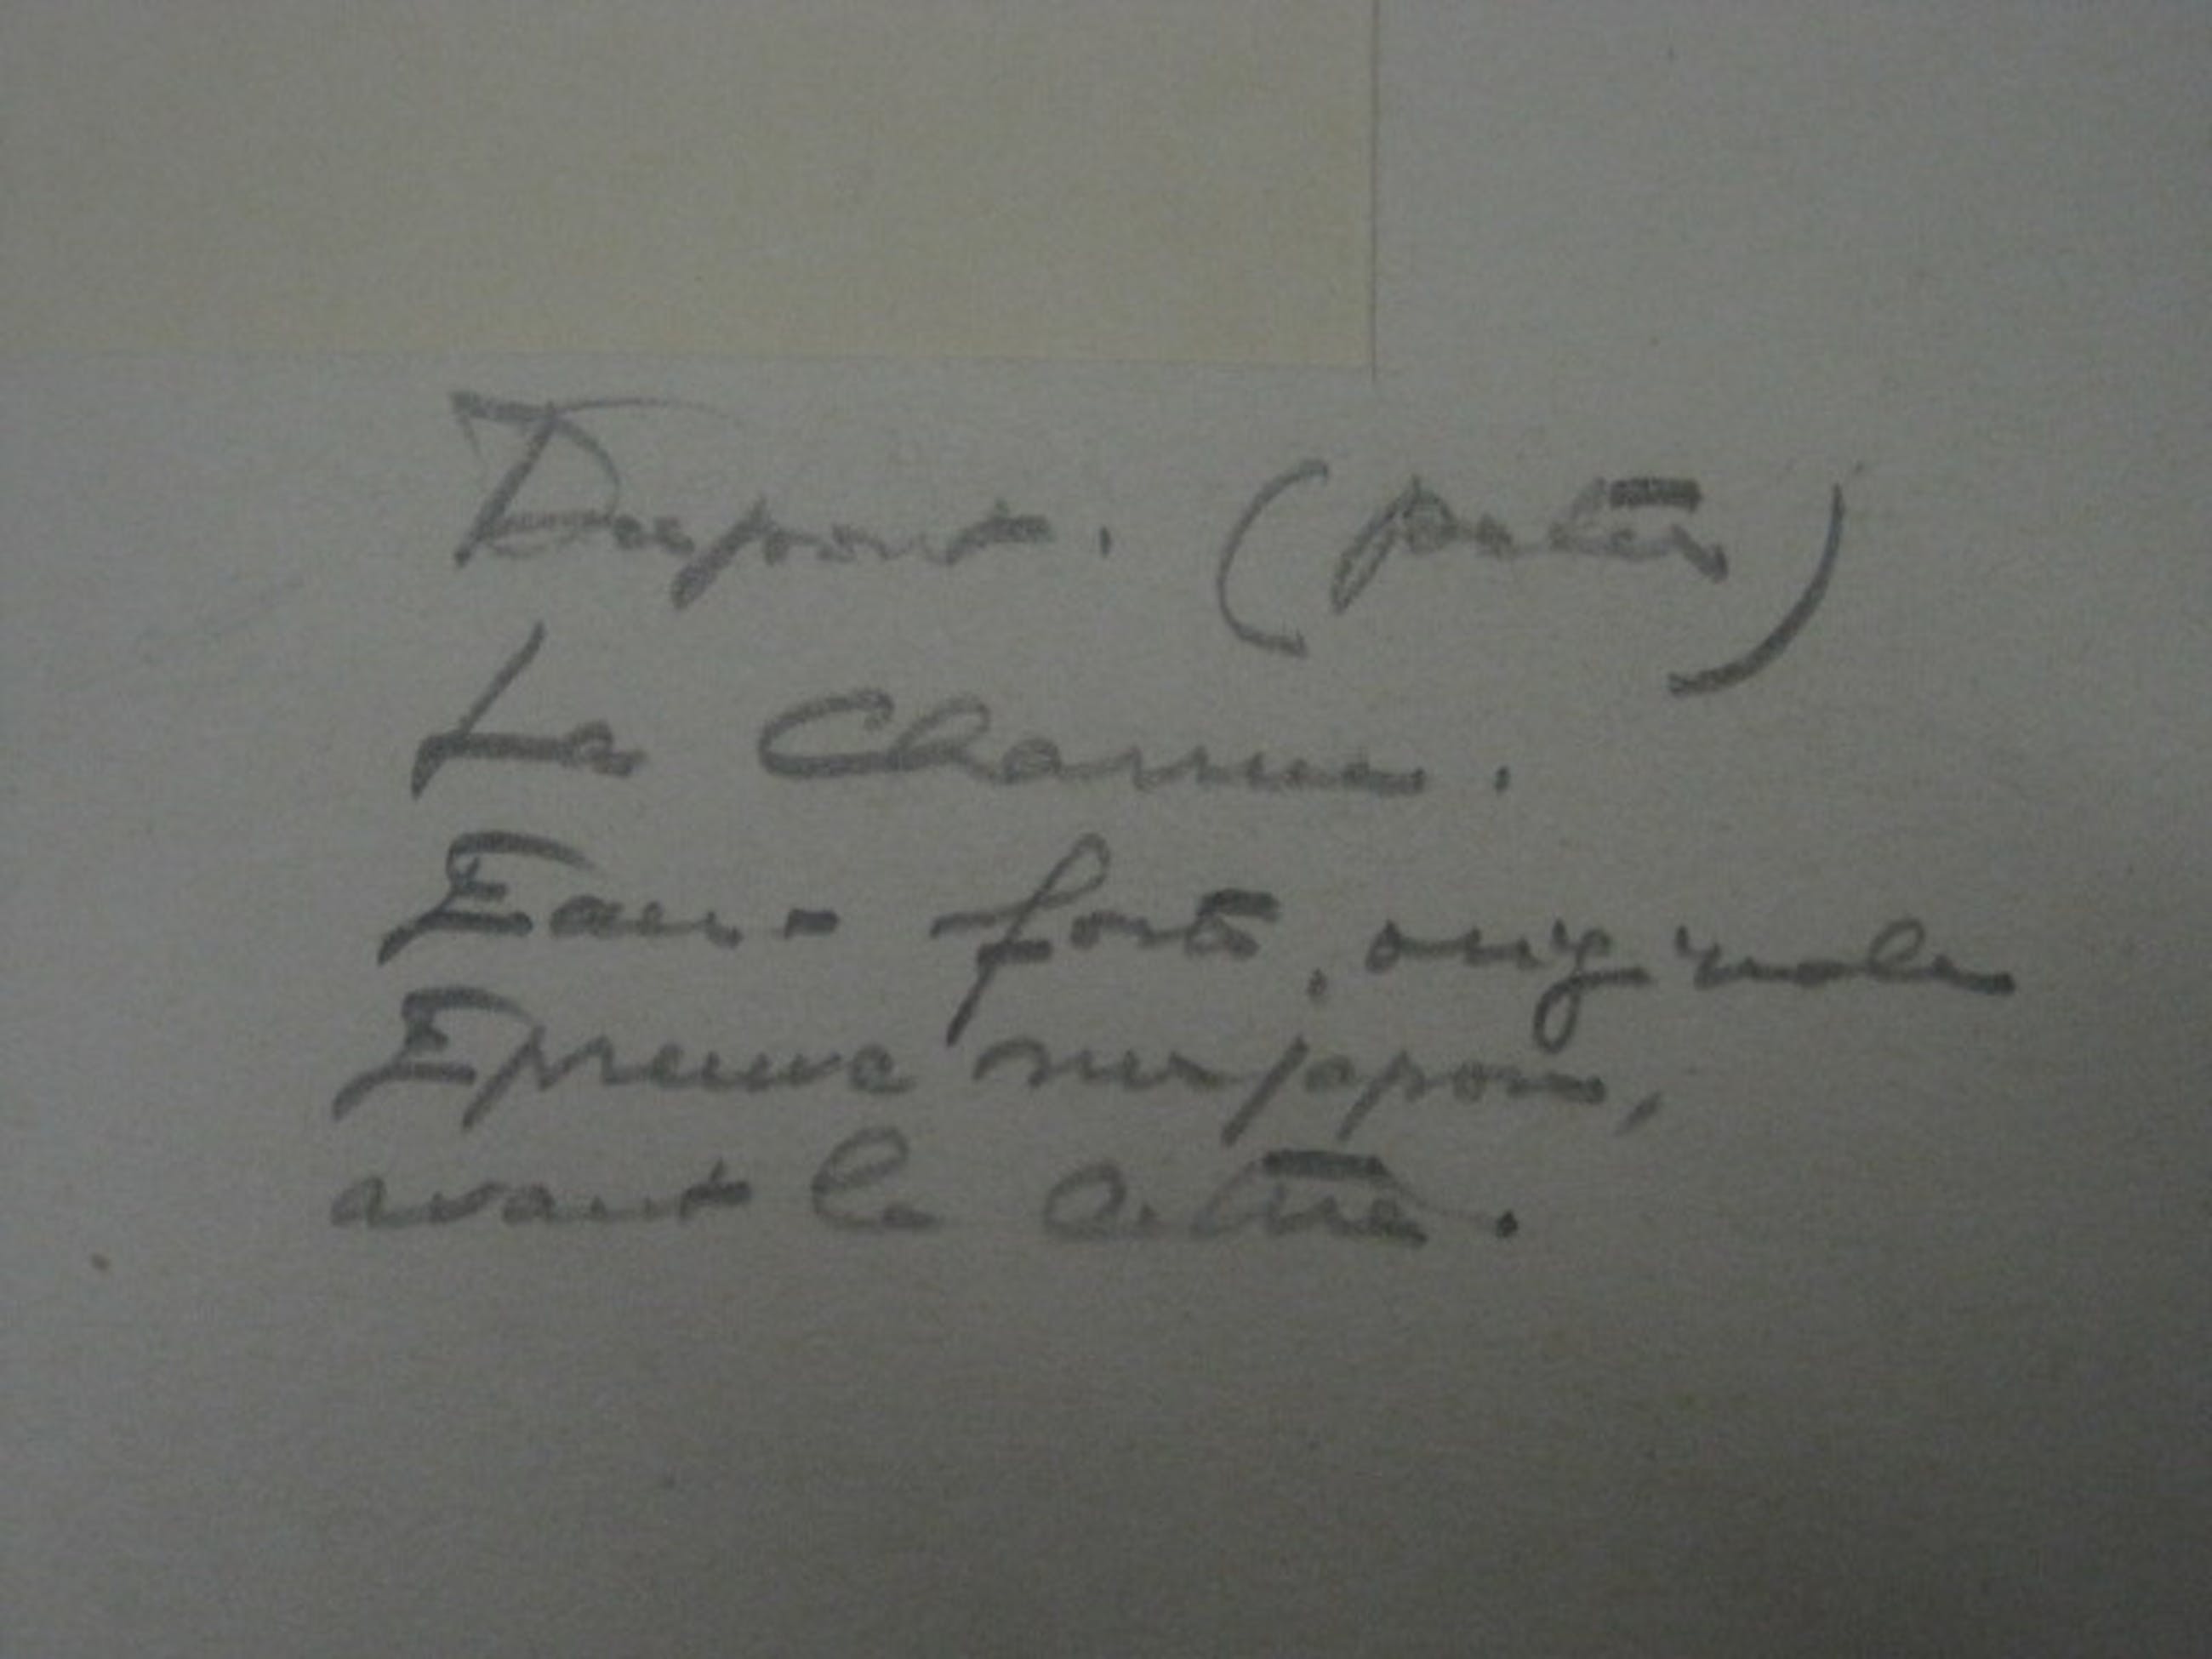 Dupont. (pieter)
La Charrue.
Eau-forte, originale
Epreuve sur japon,
avant la lettre.